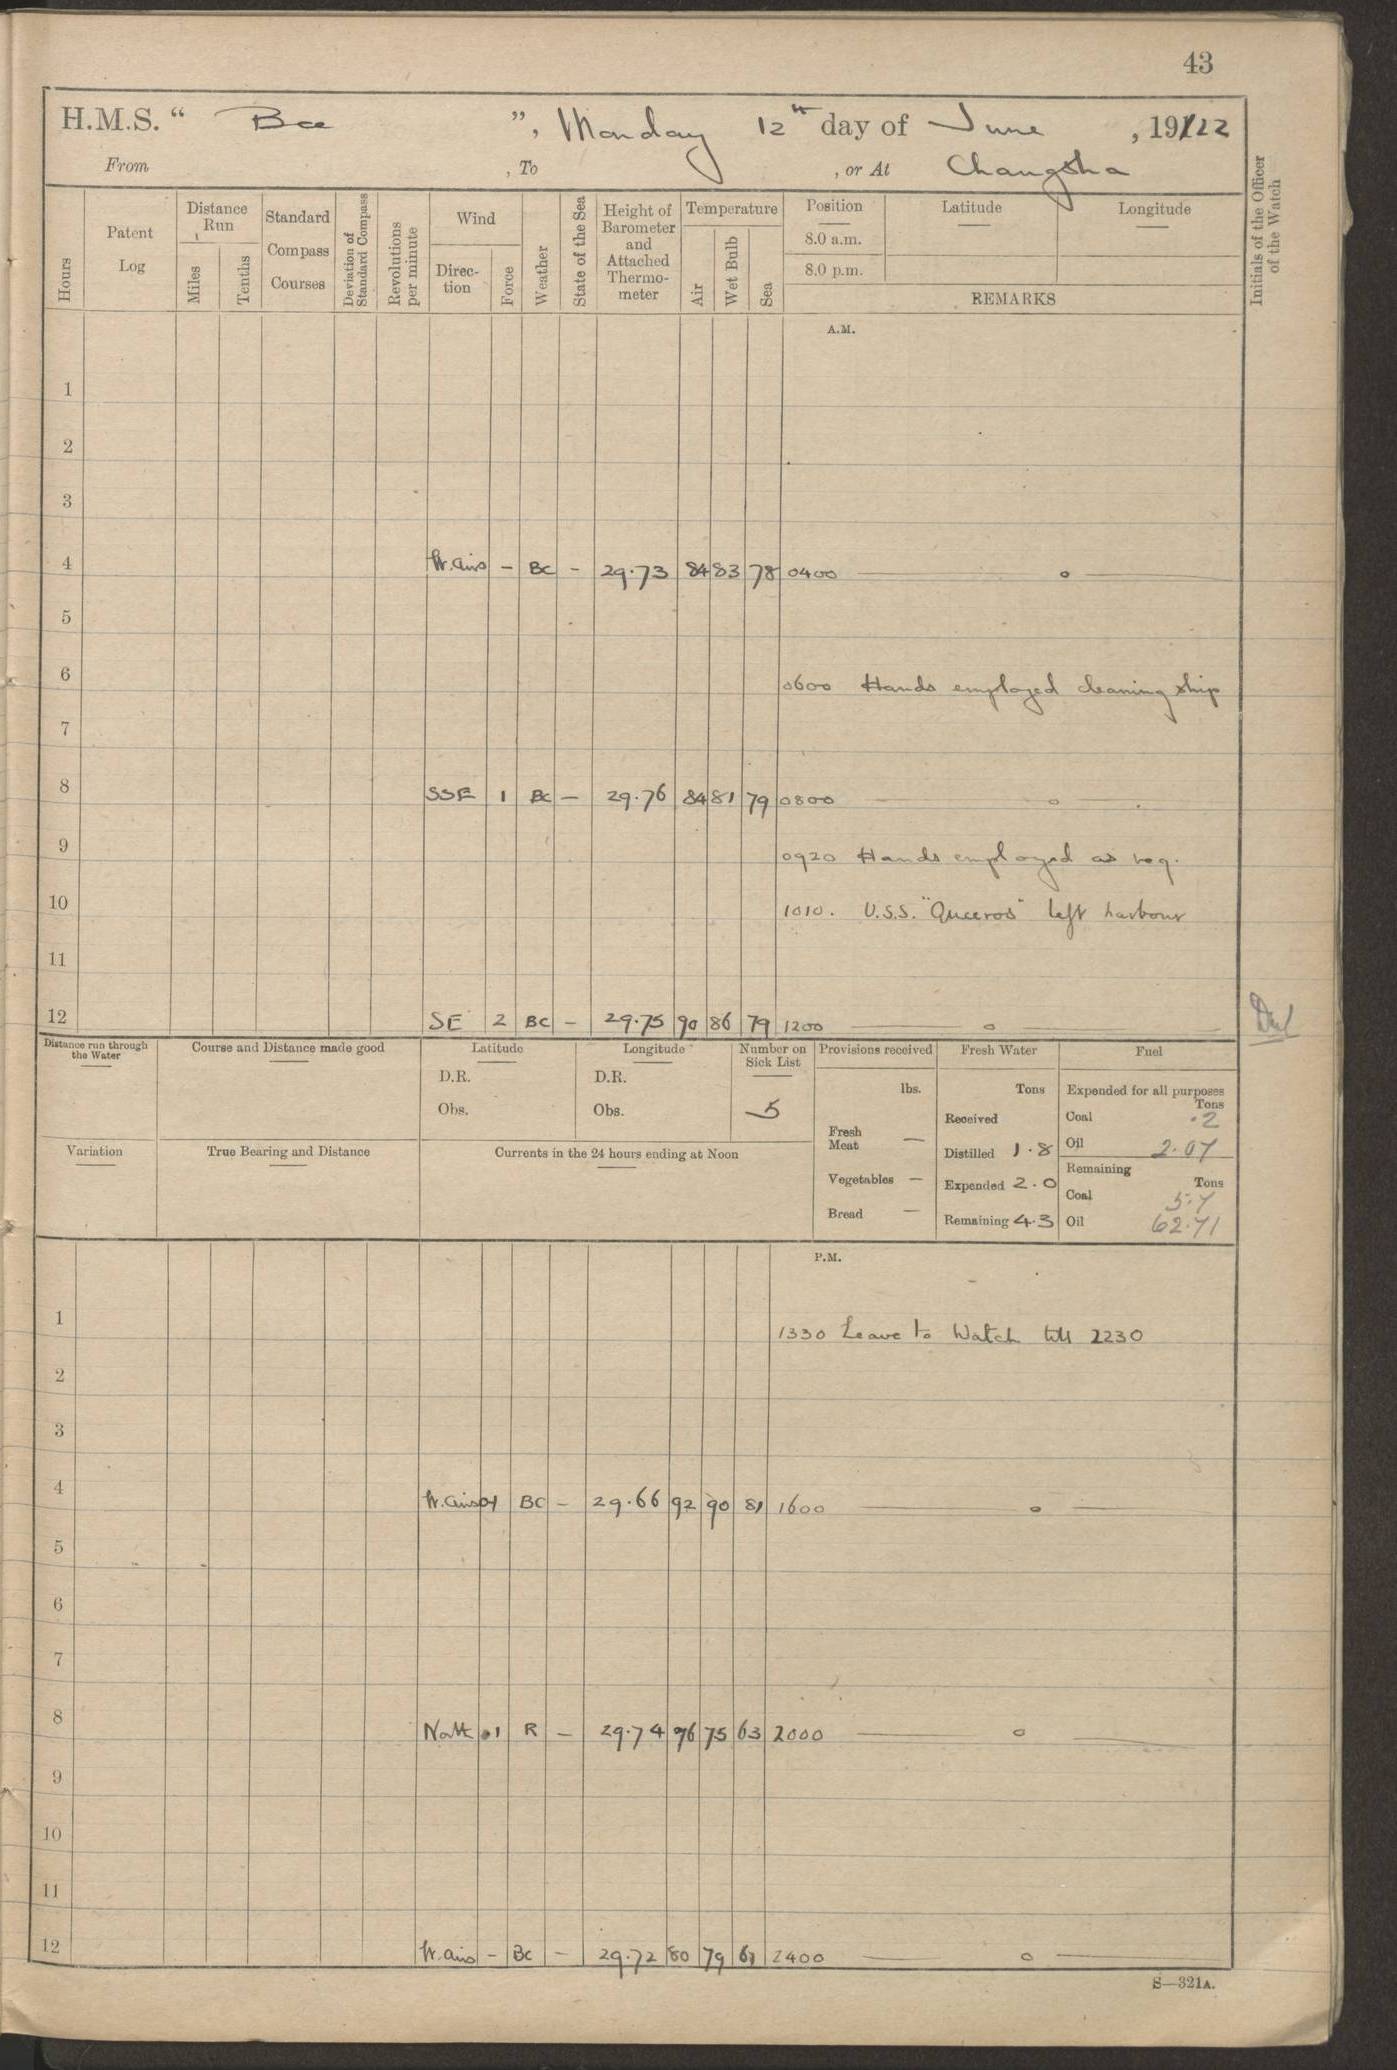 43
H.M.S. “ Bee ”, Monday 12th day of June , 19122
From , To , or At Changsha
Hours
Patent Log
Distance Run
Miles
Tenths
Standard Compass Courses
Deviation of Standard Compass
Revolutions per minute
Wind
Direc-tion
Force
Weather
State of the Sea
Height of Barometer and Attached Thermo-meter
Temperature
Air
Wet Bulb
Sea
Position
8.0 a.m.
8.0 p.m.
Latitude
Longitude
REMARKS
Initials of the Officer of the Watch
A.M.
1
2
3
4 lt. airs – BC – 29.73 84 83 78 0400 — o —
5
6 0600 Hands employed cleaning ship
7
8 SSE 1 BC – 29.76 84 81 79 0800 — o —
9 0920 Hands employed as req.
10 1010. U.S.S. "Quceros" left harbour
11
12 SE 2 BC – 29.75 90 86 79 1200 — o —
Distance run through the Water
Course and Distance made good
Latitude
D.R.
Obs.
Longitude
D.R.
Obs.
Number on Sick List
5
Provisions received
lbs.
Fresh Meat —
Vegetables —
Bread —
Fresh Water
Tons
Received
Distilled 1.8
Expended 2.0
Remaining 4.3
Fuel
Expended for all purposes
Tons
Coal .2
Oil 2.07
Remaining
Tons
Coal 5.7
Oil 62.71
Variation
True Bearing and Distance
Currents in the 24 hours ending at Noon
P.M.
1 1330 Leave to Watch till 2230
2
3
4 lt. airs 01 BC – 29.66 92 90 81 1600 — o —
5
6
7
8 North 1 R – 29.74 76 75 63 2000 — o —
9
10
11
12 lt. airs – BC – 29.72 80 79 61 2400 — o —
S—321A.